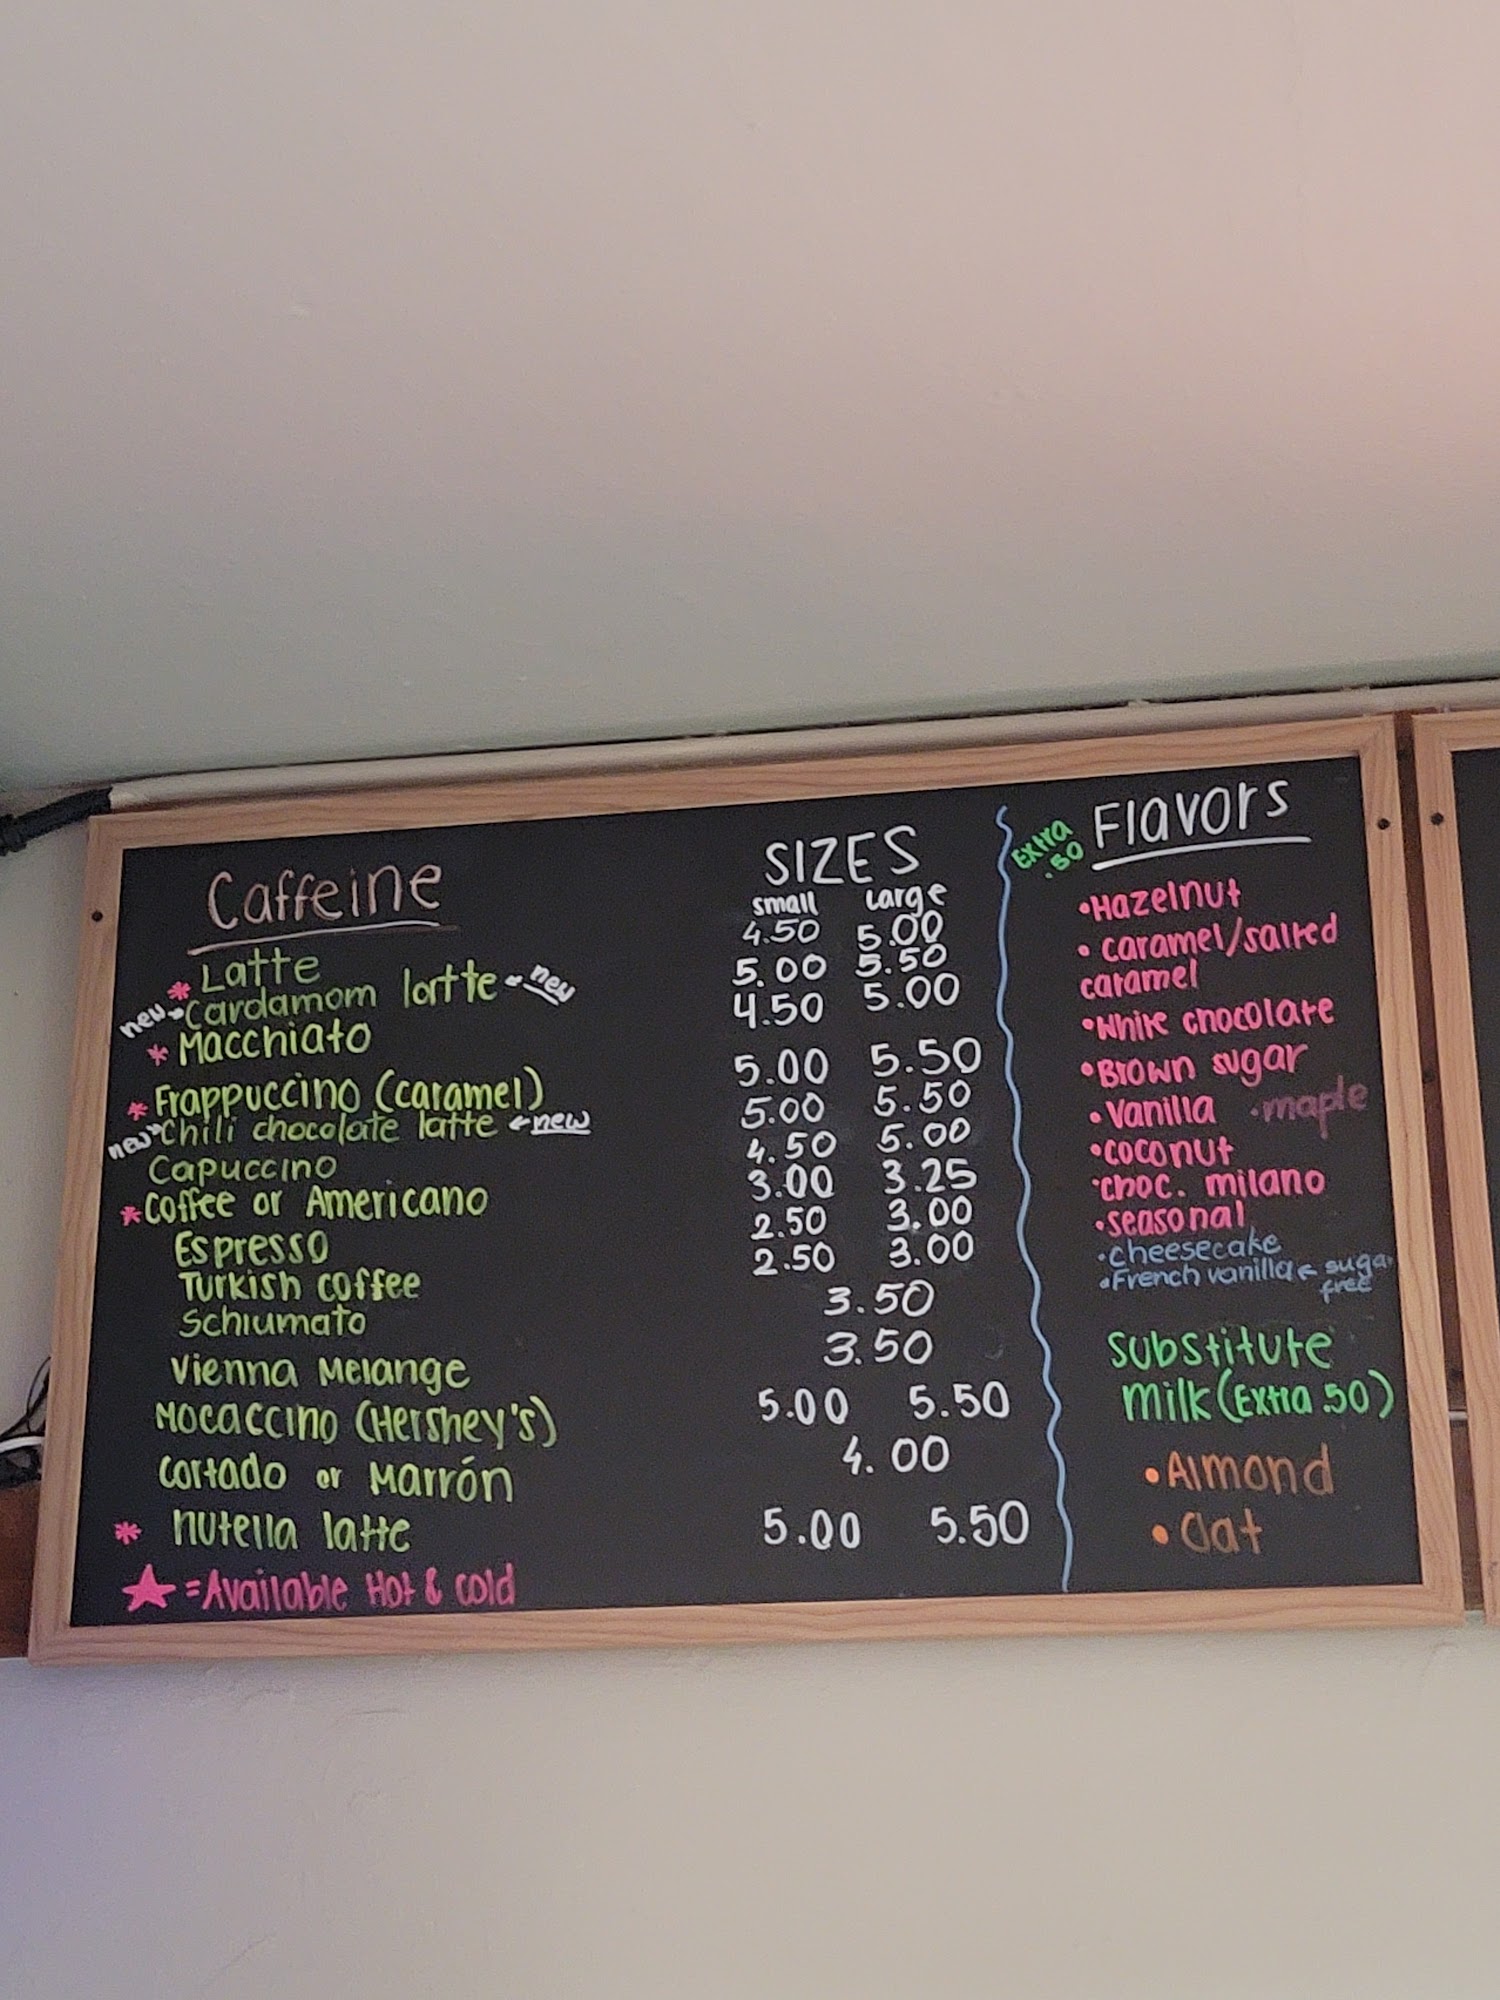 Caffeine
SIZES
small Large
* Latte 4.50 5.00
new→ Cardamom latte ← new 5.00 5.50
* Macchiato 4.50 5.00
* Frappuccino (caramel) 5.00 5.50
new→ Chili chocolate latte ← new 5.00 5.50
Capuccino 4.50 5.00
* Coffee or Americano 3.00 3.25
Espresso 2.50 3.00
Turkish coffee 2.50 3.00
Schiumato 3.50
Vienna Melange 3.50
Mocaccino (Hershey's) 5.00 5.50
Cortado or Marrón 4.00
* nutella latte 5.00 5.50
★ = Available Hot & cold
Extra .50
Flavors
• Hazelnut
• caramel/salted
caramel
• White chocolate
• Brown sugar
• Vanilla • maple
• coconut
• choc. milano
• seasonal
• cheesecake
• French vanilla ← sugar
free
Substitute
Milk (Extra .50)
• Almond
• Oat